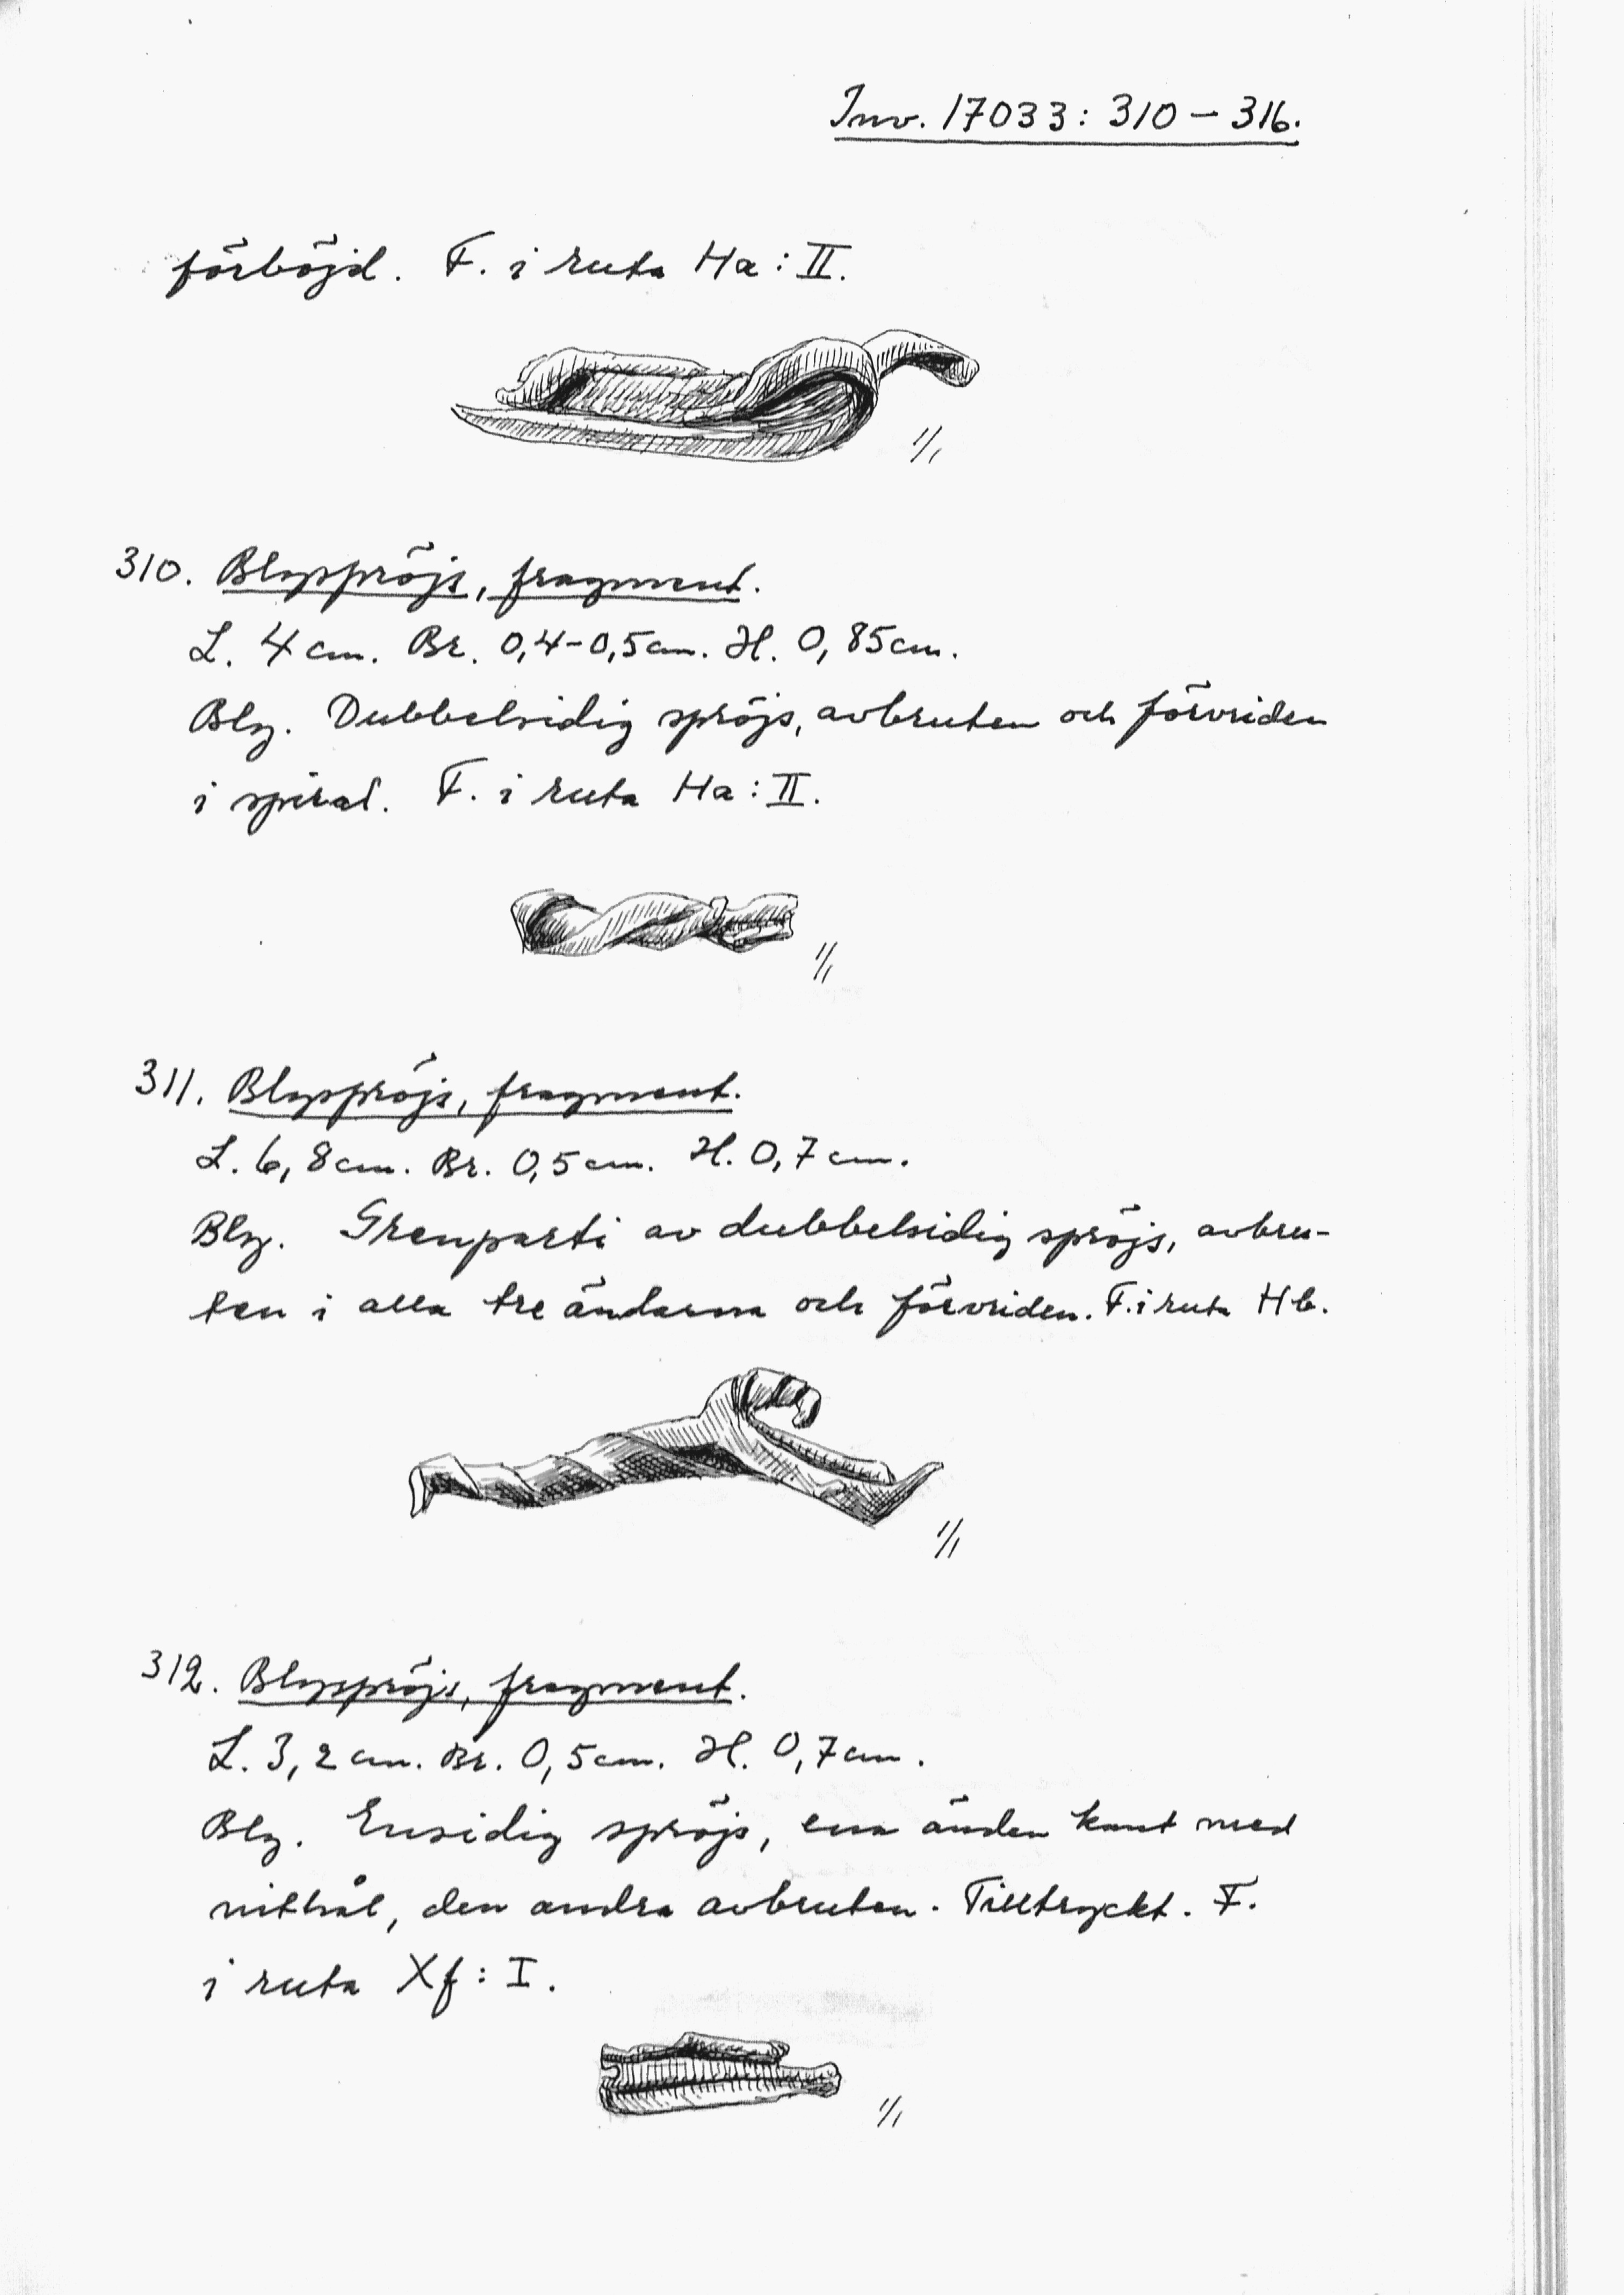 Inv. 17033: 310 – 316.
förböjd. F. i ruta Ha: II.
1/1
310. Blyspröjs, fragment.
L. 4 cm. Br. 0,4-0,5 cm. H. 0,85 cm.
Bly. Dubbelsidig spröjs, avbruten och förvriden
i spiral. F. i ruta Ha: II.
1/1
311. Blyspröjs, fragment.
L. 6,8 cm. Br. 0,5 cm. H. 0,7 cm.
Bly. Grenparti av dubbelsidig spröjs, avbru-
ten i alla tre ändarna och förvriden. F. i ruta Hb.
1/1
312. Blyspröjs, fragment.
L. 3,2 cm. Br. 0,5 cm. H. 0,7 cm.
Bly. Ensidig spröjs, ena änden kant med
nithål, den andra avbruten. Tilltryckt. F.
i ruta Xf: I.
1/1